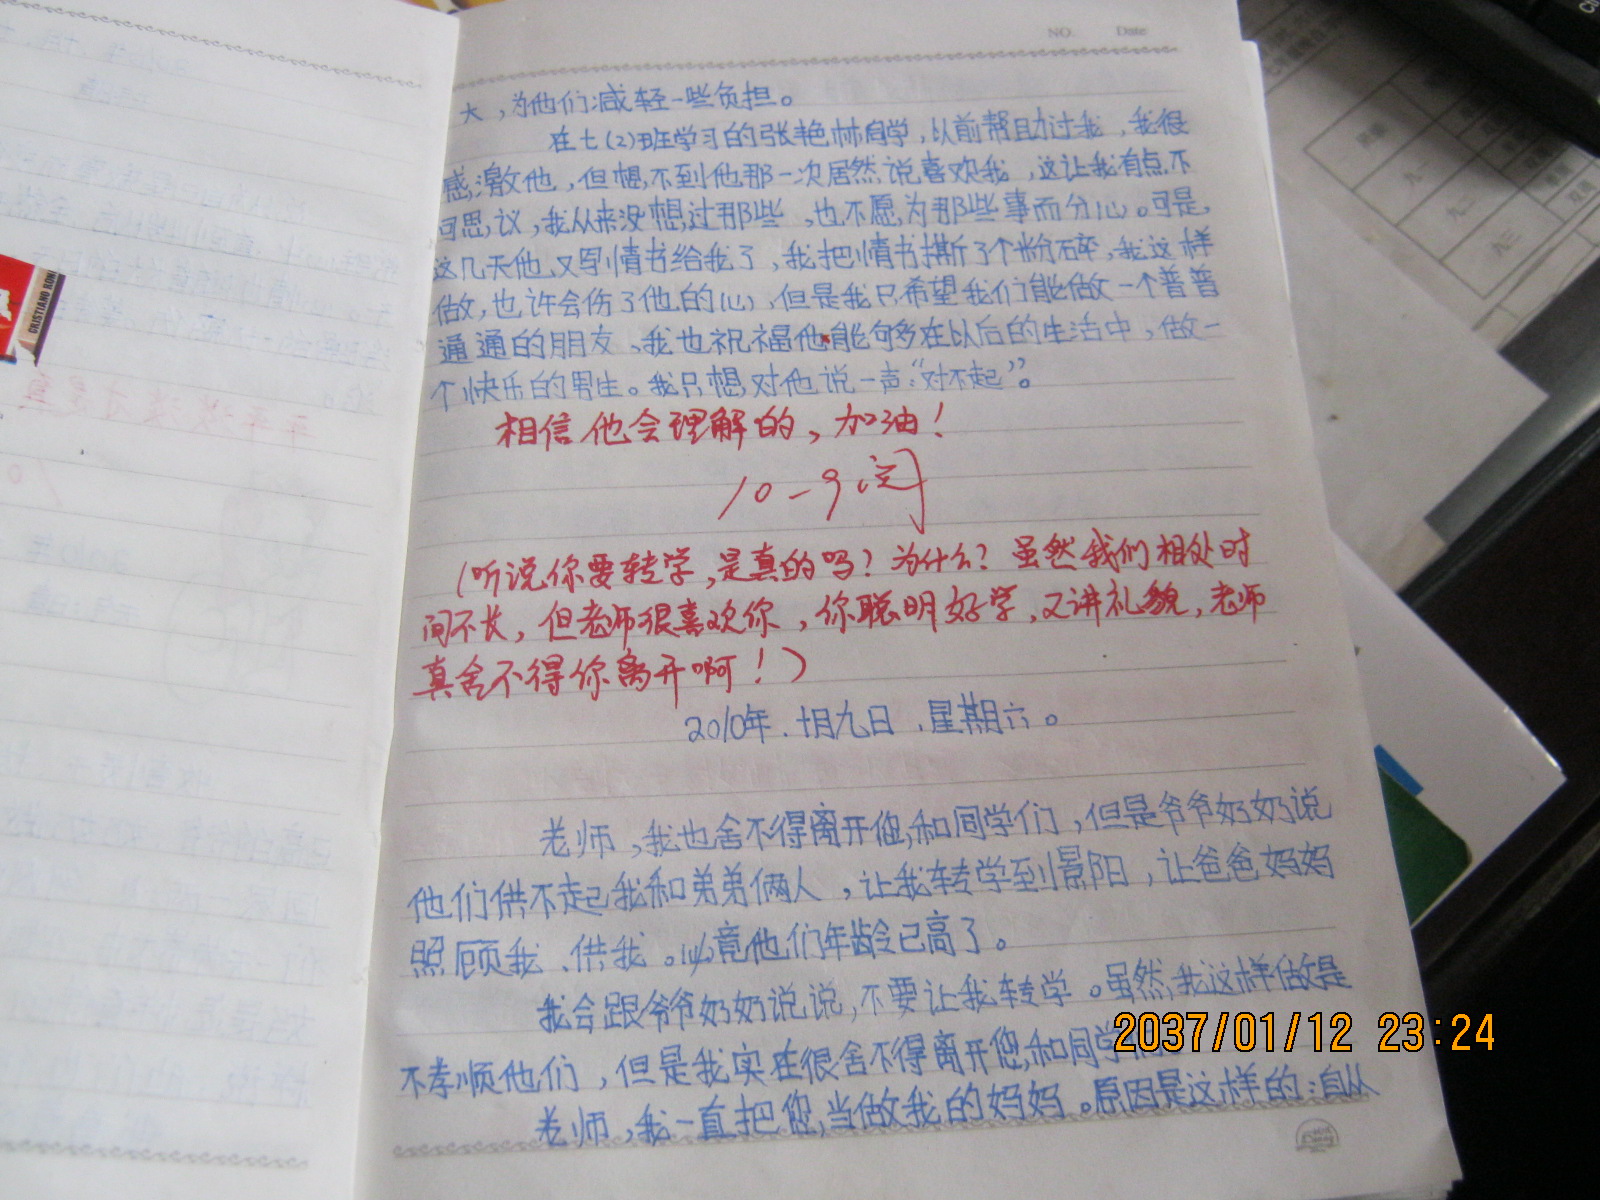 NO. Date
大，为他们减轻一些负担。
在七(2)班学习的张艳林自学，以前帮助过我，我很
感激他，但想不到他那一次居然说喜欢我，这让我有点不
可思议，我从来没想过那些，也不愿为那些事而分心。可是，
这几天他又写情书给我了，我把情书撕了个粉碎，我这样
做，也许会伤了他的心，但是我只希望我们能做一个普普
通通的朋友、我也祝福他能够在以后的生活中，做一
个快乐的男生。我只想对他说一声“对不起”。
相信他会理解的，加油！
10-9
(听说你要转学，是真的吗？为什么？虽然我们相处时
间不长，但老师很喜欢你，你聪明好学，又讲礼貌，老师
真舍不得你离开啊！)
2010年．十月九日．星期六。
老师，我也舍不得离开您和同学们，但是爷爷奶奶说
他们供不起我和弟弟俩人，让我转学到景阳，让爸爸妈妈
照顾我、供我。必竟他们年龄已高了。
我会跟爷爷奶奶说说，不要让我转学。虽然我这样做是
不孝顺他们，但是我实在很舍不得离开您和同学
老师，我一直把您当做我的妈妈。原因是这样的：自从
2037/01/12 23:24
CRISTIANO RON
九一
九二
九三